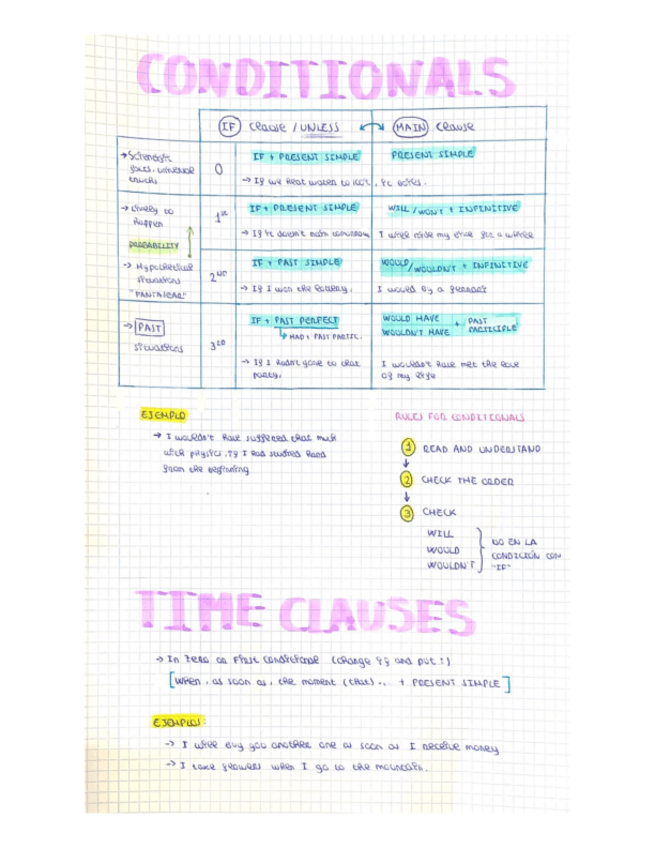 CONDITIONALS
IF Clause / UNLESS MAIN Clause
→ Scientific facts, universal truths
0
IF + PRESENT SIMPLE
PRESENT SIMPLE
→ If we heat water to 100ºC, it boils.
→ Likely to happen
1st
IF + PRESENT SIMPLE
WILL / WON'T + INFINITIVE
→ If it doesn't rain tomorrow
I will ride my bike for a while
PROBABILITY
→ Hypothetical situations
2ND
IF + PAST SIMPLE
WOULD / WOULDN'T + INFINITIVE
→ If I won the lottery,
→ PAST situations
3RD
IF + PAST PERFECT
↳ HAD + PAST PARTIC.
WOULD HAVE
WOULDN'T HAVE + PAST PARTICIPLE
→ If I hadn't gone to that party,
I wouldn't have met the love of my life
EJEMPLO
→ I wouldn't have suffered that much
with physics, if I had studied hard
from the beginning
RULES FOR CONDITIONALS
1 READ AND UNDERSTAND
2 CHECK THE ORDER
3 CHECK
WILL
WOULD
WOULDN'T
NO EN LA
CONDICIÓN CON
"IF"
TIME CLAUSES
→ In zero or First conditional (change if and put:)
[When, as soon as, the moment (that)... + PRESENT SIMPLE]
EJEMPLOS:
→ I will buy you another one as soon as I receive money
→ I take flowers when I go to the mountain.